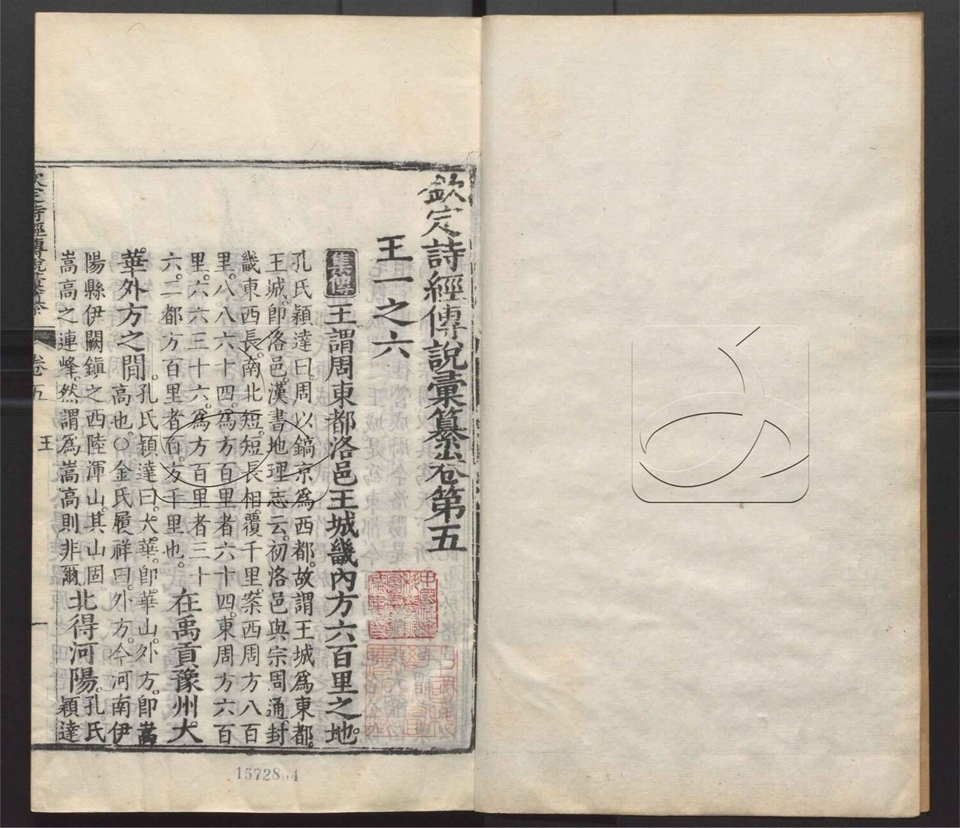 欽定詩經傳說彙纂卷第五
王一之六
集傳王謂周東都洛邑王城畿內方六百里之地。
孔氏穎達曰周以鎬京為西都。故謂王城為東都。
王城。即洛邑。漢書地理志云。初洛邑與宗周通封
畿東西長。南北短。短長相覆千里。案西周方八百
里。八八六十四。為方百里者六十四。東周方六百
里。六六三十六。為方百里者三十
六。二都方百里者百。方千里也。
在禹貢豫州。大
華外方之間
孔氏穎達曰。大華。即華山。外方。即嵩
高也。○金氏履祥曰。外方。今河南伊
陽縣伊闕鎮之西陸渾山。其山固
嵩高之連峰。然謂為嵩高則非爾。
北得河陽。
孔氏
穎達
欽定詩經傳說彙纂
卷五
王
一
15728 4